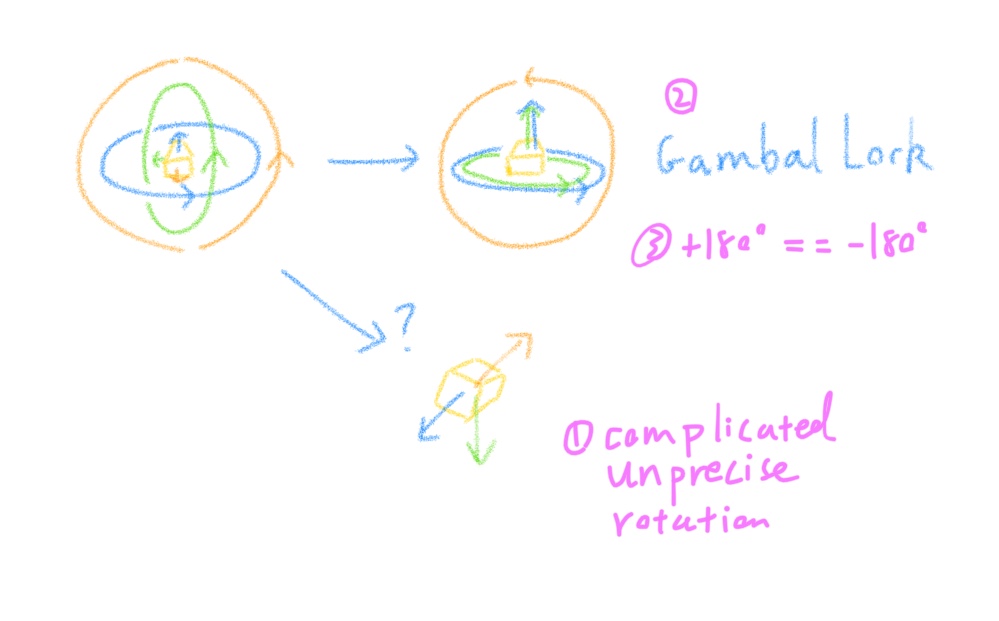 ②
Gambal Lock
③ +180° == -180°
?
① complicated
unprecise
rotation